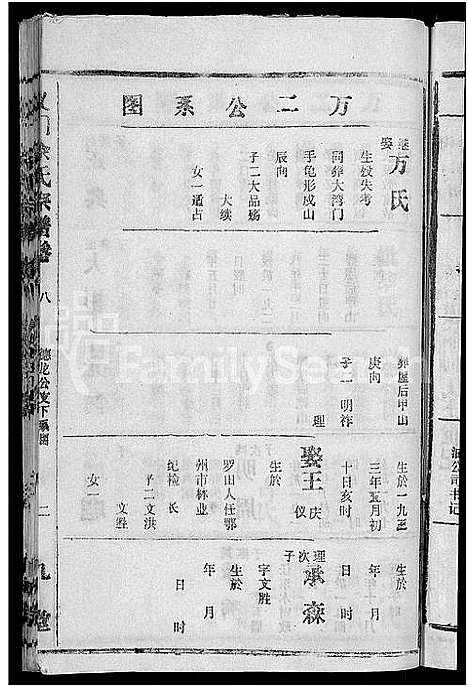 万二公系图
继娶方氏
生殁失考
同葬大湾门
手龟形戍山
辰向
子二大品殇
大续
女一适占
葬屋后甲山
庚向
子一明祚
理
生於一九三
三年五月初
十日亥时
娶王庆仪
生於
罗山人任鄂
州市林业
纪检长
子二文洪
文胜
女一
生於
年月
日时
理次子承森
字文胜
生於
年月
日时
氏宗谱卷
八
德龙公支下系图
二
FamilySearch